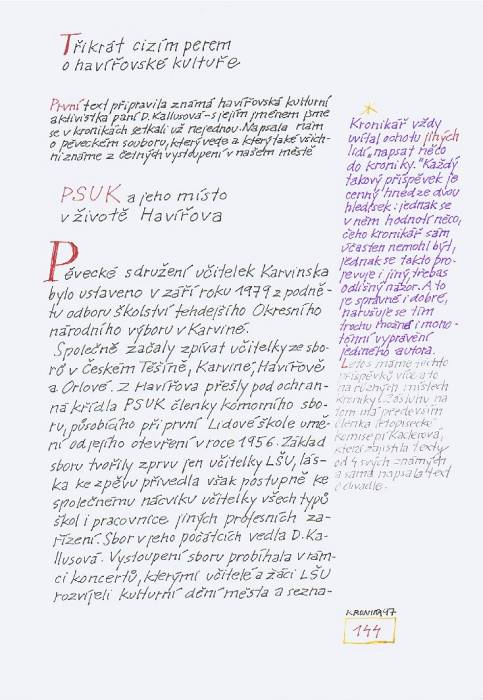 Třikrát cizím perem
o havířovské kultuře
První text připravila známá havířovská kulturní
aktivistka paní D. Kallusová – s jejím jménem jsme
se v kronikách setkali už nejednou. Napsala nám
o pěveckém souboru, který vede a který také všich-
ni známe z četných vystoupení v našem městě
PSUK a jeho místo
v životě Havířova
Pěvecké sdružení učitelek Karvinska
bylo ustaveno v září roku 1979 z podně-
tu odboru školství tehdejšího Okresního
národního výboru v Karviné.
Společně začaly zpívat učitelky ze sbo-
rů v Českém Těšíně, Karvine, Havířově
a Orlové. Z Havířova přešly pod ochran-
ná křídla PSUK členky komorního sbo-
ru, působícího při první Lidové škole umě-
ní od jejího otevření v roce 1956. Základ
sboru tvořily zprvu jen učitelky LŠU, lás-
ka ke zpěvu přivedla však postupně ke
společnému nácviku učitelky všech typů
škol i pracovnice jiných profesních za-
řízení. Sbor v jeho počátcích vedla D. Ka-
llusová. Vystoupení sboru probíhala v rám-
ci koncertů, kterými učitelé a žáci LŠU
rozvíjeli kulturní dění města a sezna-
Kronikář vždy
vítal ochotu jiných
lidí, napsat něco
do kroniky. Každý
takový příspěvek je
cenný hned ze dvou
hledisek: jednak se
v něm hodnotí něco,
čeho kronikář sám
účasten nemohl být,
jednak se takto pro-
jevuje i jiný, třebas
odlišný názor. A to
je správné i dobré,
narušuje se tím
trochu možná i mono-
tónní vyprávění
jediného autora.
Letos máme těchto
příspěvků více a to
na různých místech
kroniky. Zásluhu na
tom má především
členka letopisecké
komise pí Kaderová,
která zajistila texty
od svých známých
a sama napsala text
o divadle.
KRONIKA 97
144